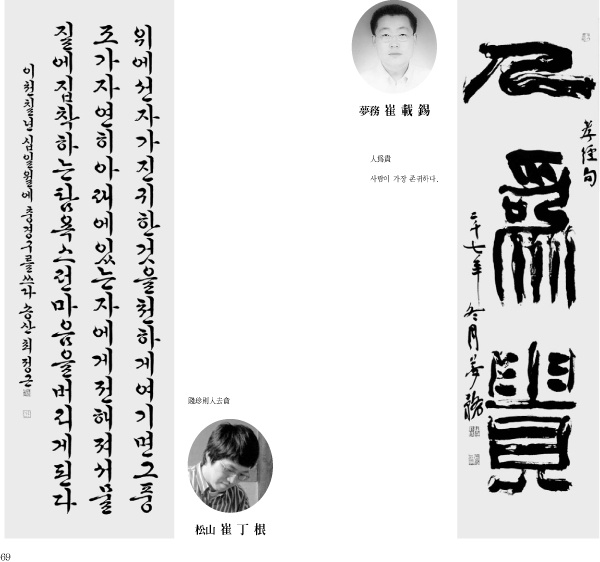 위에선자가진귀한것을천하게여기면그풍
조가자연히아래에있는자에게전해져서물
질에집착하는탐욕스런마음을버리게된다
이천칠년십일월에 충경구를쓰다 송산 최정근
賤珍則人去貪
松山 崔丁根
夢務 崔載錫
人爲貴
사람이 가장 존귀하다.
人爲貴
孝經句
二千七年 冬月 夢務
69